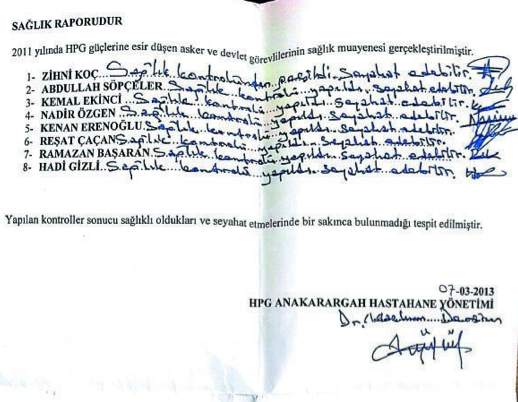 SAĞLIK RAPORUDUR
2011 yılında HPG güçlerine esir düşen asker ve devlet görevlilerinin sağlık muayenesi gerçekleştirilmiştir.
1- ZİHNİ KOÇ...Sağlık kontrolünden geçirildi. Seyahat edebilir.
2- ABDULLAH SÖPÇELER. Sağlık kontrolü yapıldı. Seyahat edebilir.
3- KEMAL EKİNCİ...Sağlık kontrolü yapıldı. Seyahat edebilir.
4- NADİR ÖZGEN...Sağlık kontrolü yapıldı. Seyahat edebilir.
5- KENAN ERENOĞLU.Sağlık kontrolü yapıldı. Seyahat edebilir.
6- REŞAT ÇAÇAN.Sağlık kontrolü yapıldı. Seyahat edebilir.
7- RAMAZAN BAŞARAN.Sağlık kontrolü yapıldı. Seyahat edebilir.
8- HADİ GİZLİ.Sağlık kontrolü yapıldı. Seyahat edebilir.
Yapılan kontroller sonucu sağlıklı oldukları ve seyahat etmelerinde bir sakınca bulunmadığı tespit edilmiştir.
07-03-2013
HPG ANAKARARGAH HASTAHANE YÖNETİMİ
Dr.